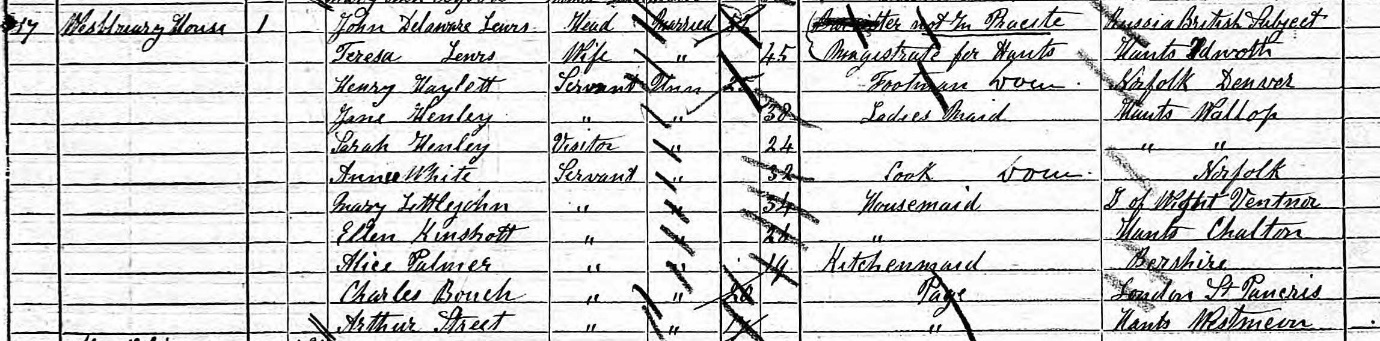 17 Westbury House 1 John Delaware Lewis Head Married Barrister not In Practe Russia British Subject
Teresa Lewis Wife " 45 Magistrate for Hants Hants Idworth
Henry Haylett Servant Unm 25 Footman Dom Norfolk Denver
Jane Henley " " 38 Ladies Maid Hants Wallop
Sarah Henley Visitor " 24 " "
Annee White Servant " 32 Cook Dom Norfolk
Mary Littlejohn " " 34 Housemaid I of Wight Ventnor
Ellen Kinshott " " 26 " Hants Chalton
Alice Palmer " " 19 Kitchenmaid Bershire
Charles Bouch " " 20 Page London St Pancris
Arthur Street " " " Hants Westmeon